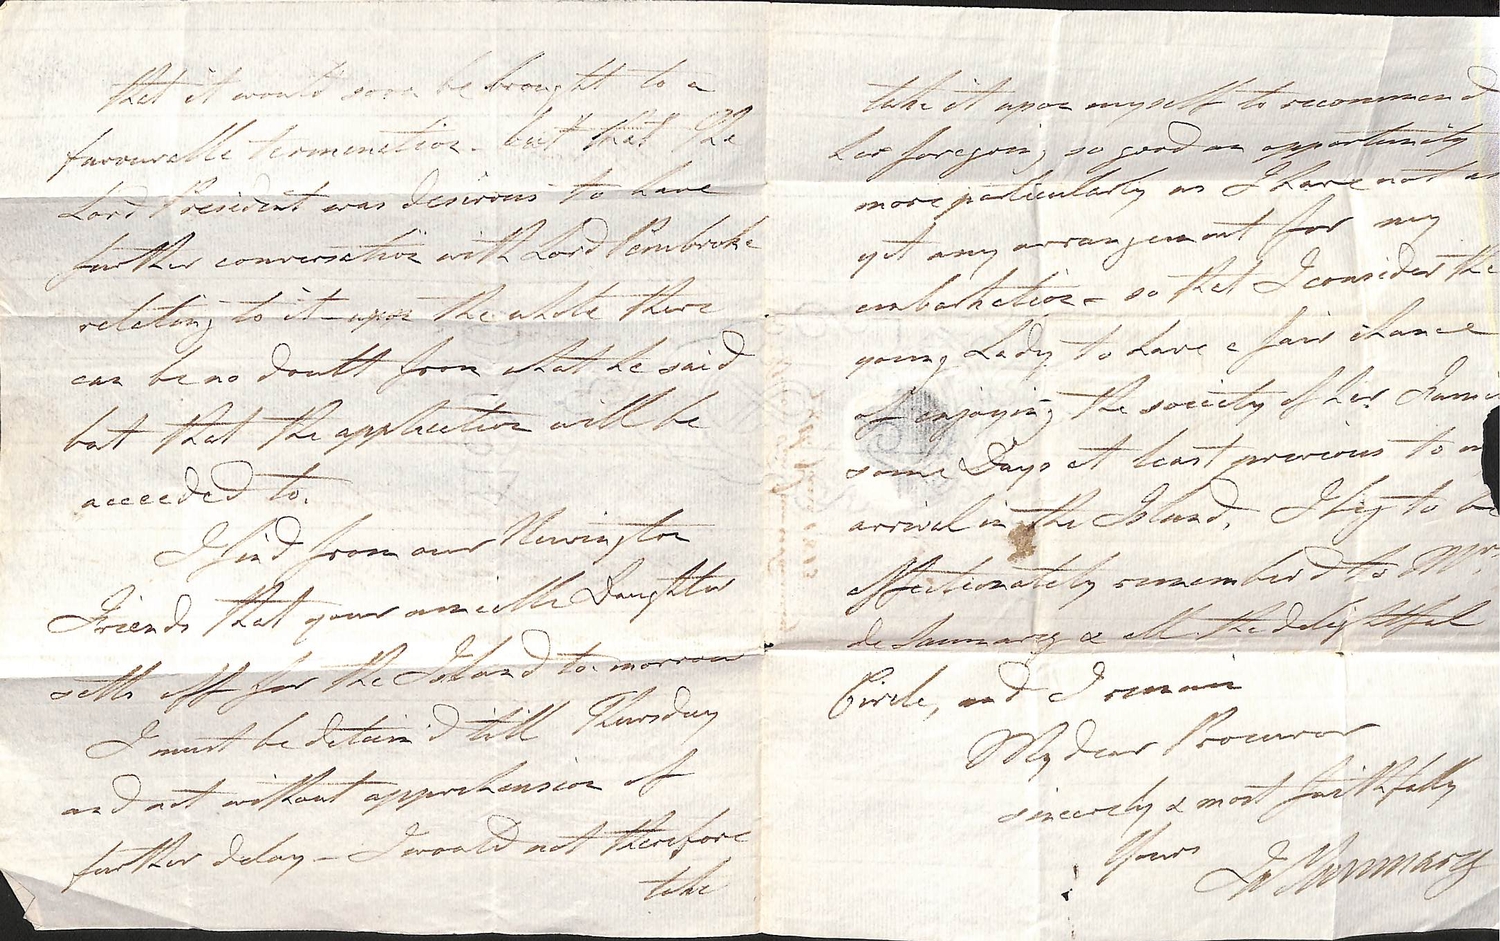 that it would soon be brought to a
favourable termination - but that the
Lord President was desirous to have
further conversation with Lord Pembroke
relating to it - upon the whole there
can be no doubt from what he said
but that the application will be
acceeded to.
I find from our Newington
Friends that your amiable Daughter
setts off for the Island to-morrow
I must be detain'd till Thursday
and not without apprehension of
further delay - I would not therefore
take
take it upon myself to recommend
her foregoing so good an opportunity
more particularly as I have not as
yet any arrangement for my
embarkation - so that I consider the
young Lady to have a fair chance
of enjoying the society of her
some Days at least previous to
arrival in the Island. I beg to be
affectionately remember'd to Mrs.
de Saumarez & all the delightful
Circle, and I remain
My dear Procureur
sincerely & most faithfully
Yours Saumarez